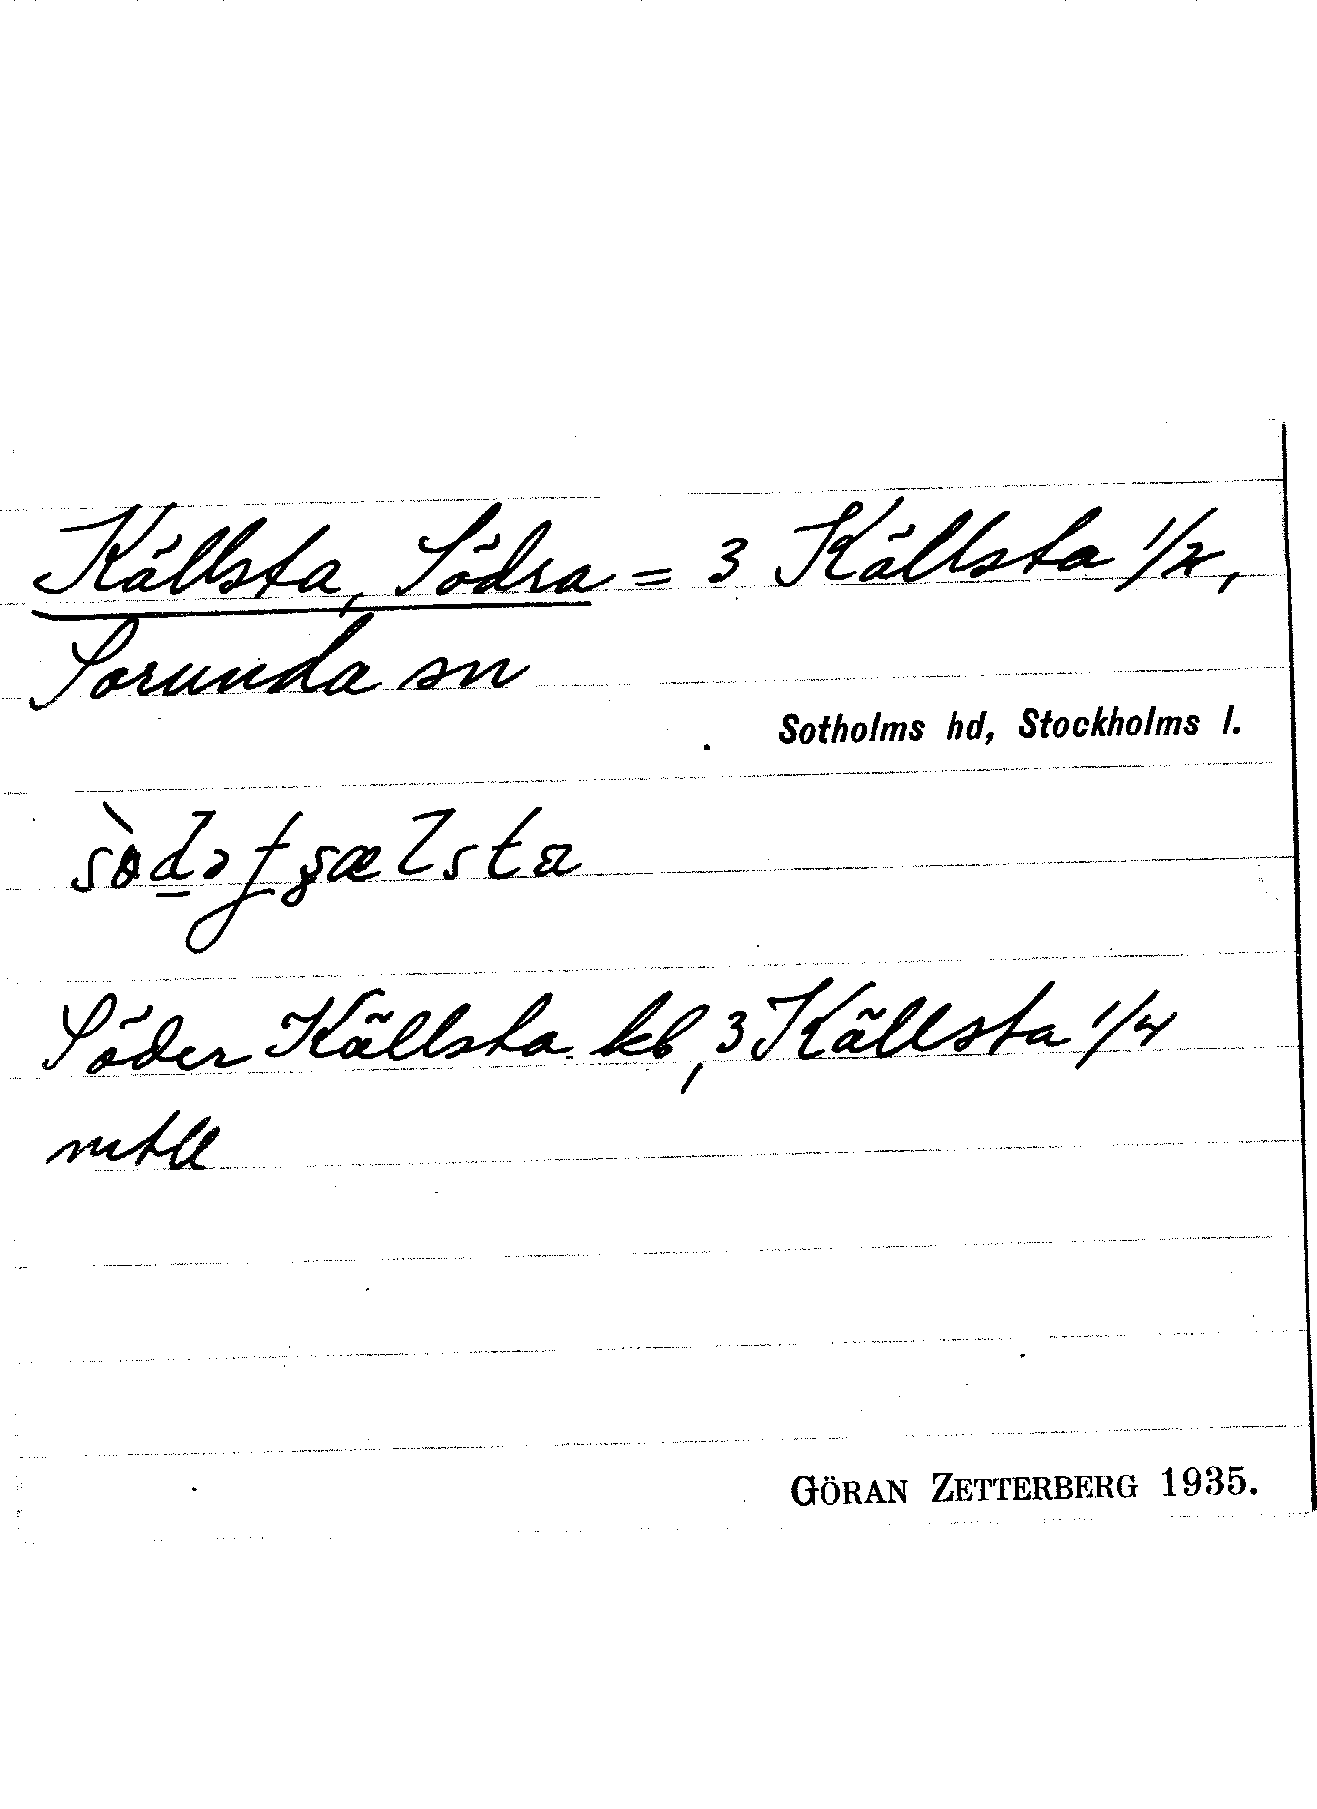 Källsta, Södra = 3 Källsta 1/2,
Sorunda sn
Sotholms hd, Stockholms l.
Söder Källsta kb, 3 Källsta 1/4
mtll
GÖRAN ZETTERBERG 1935.